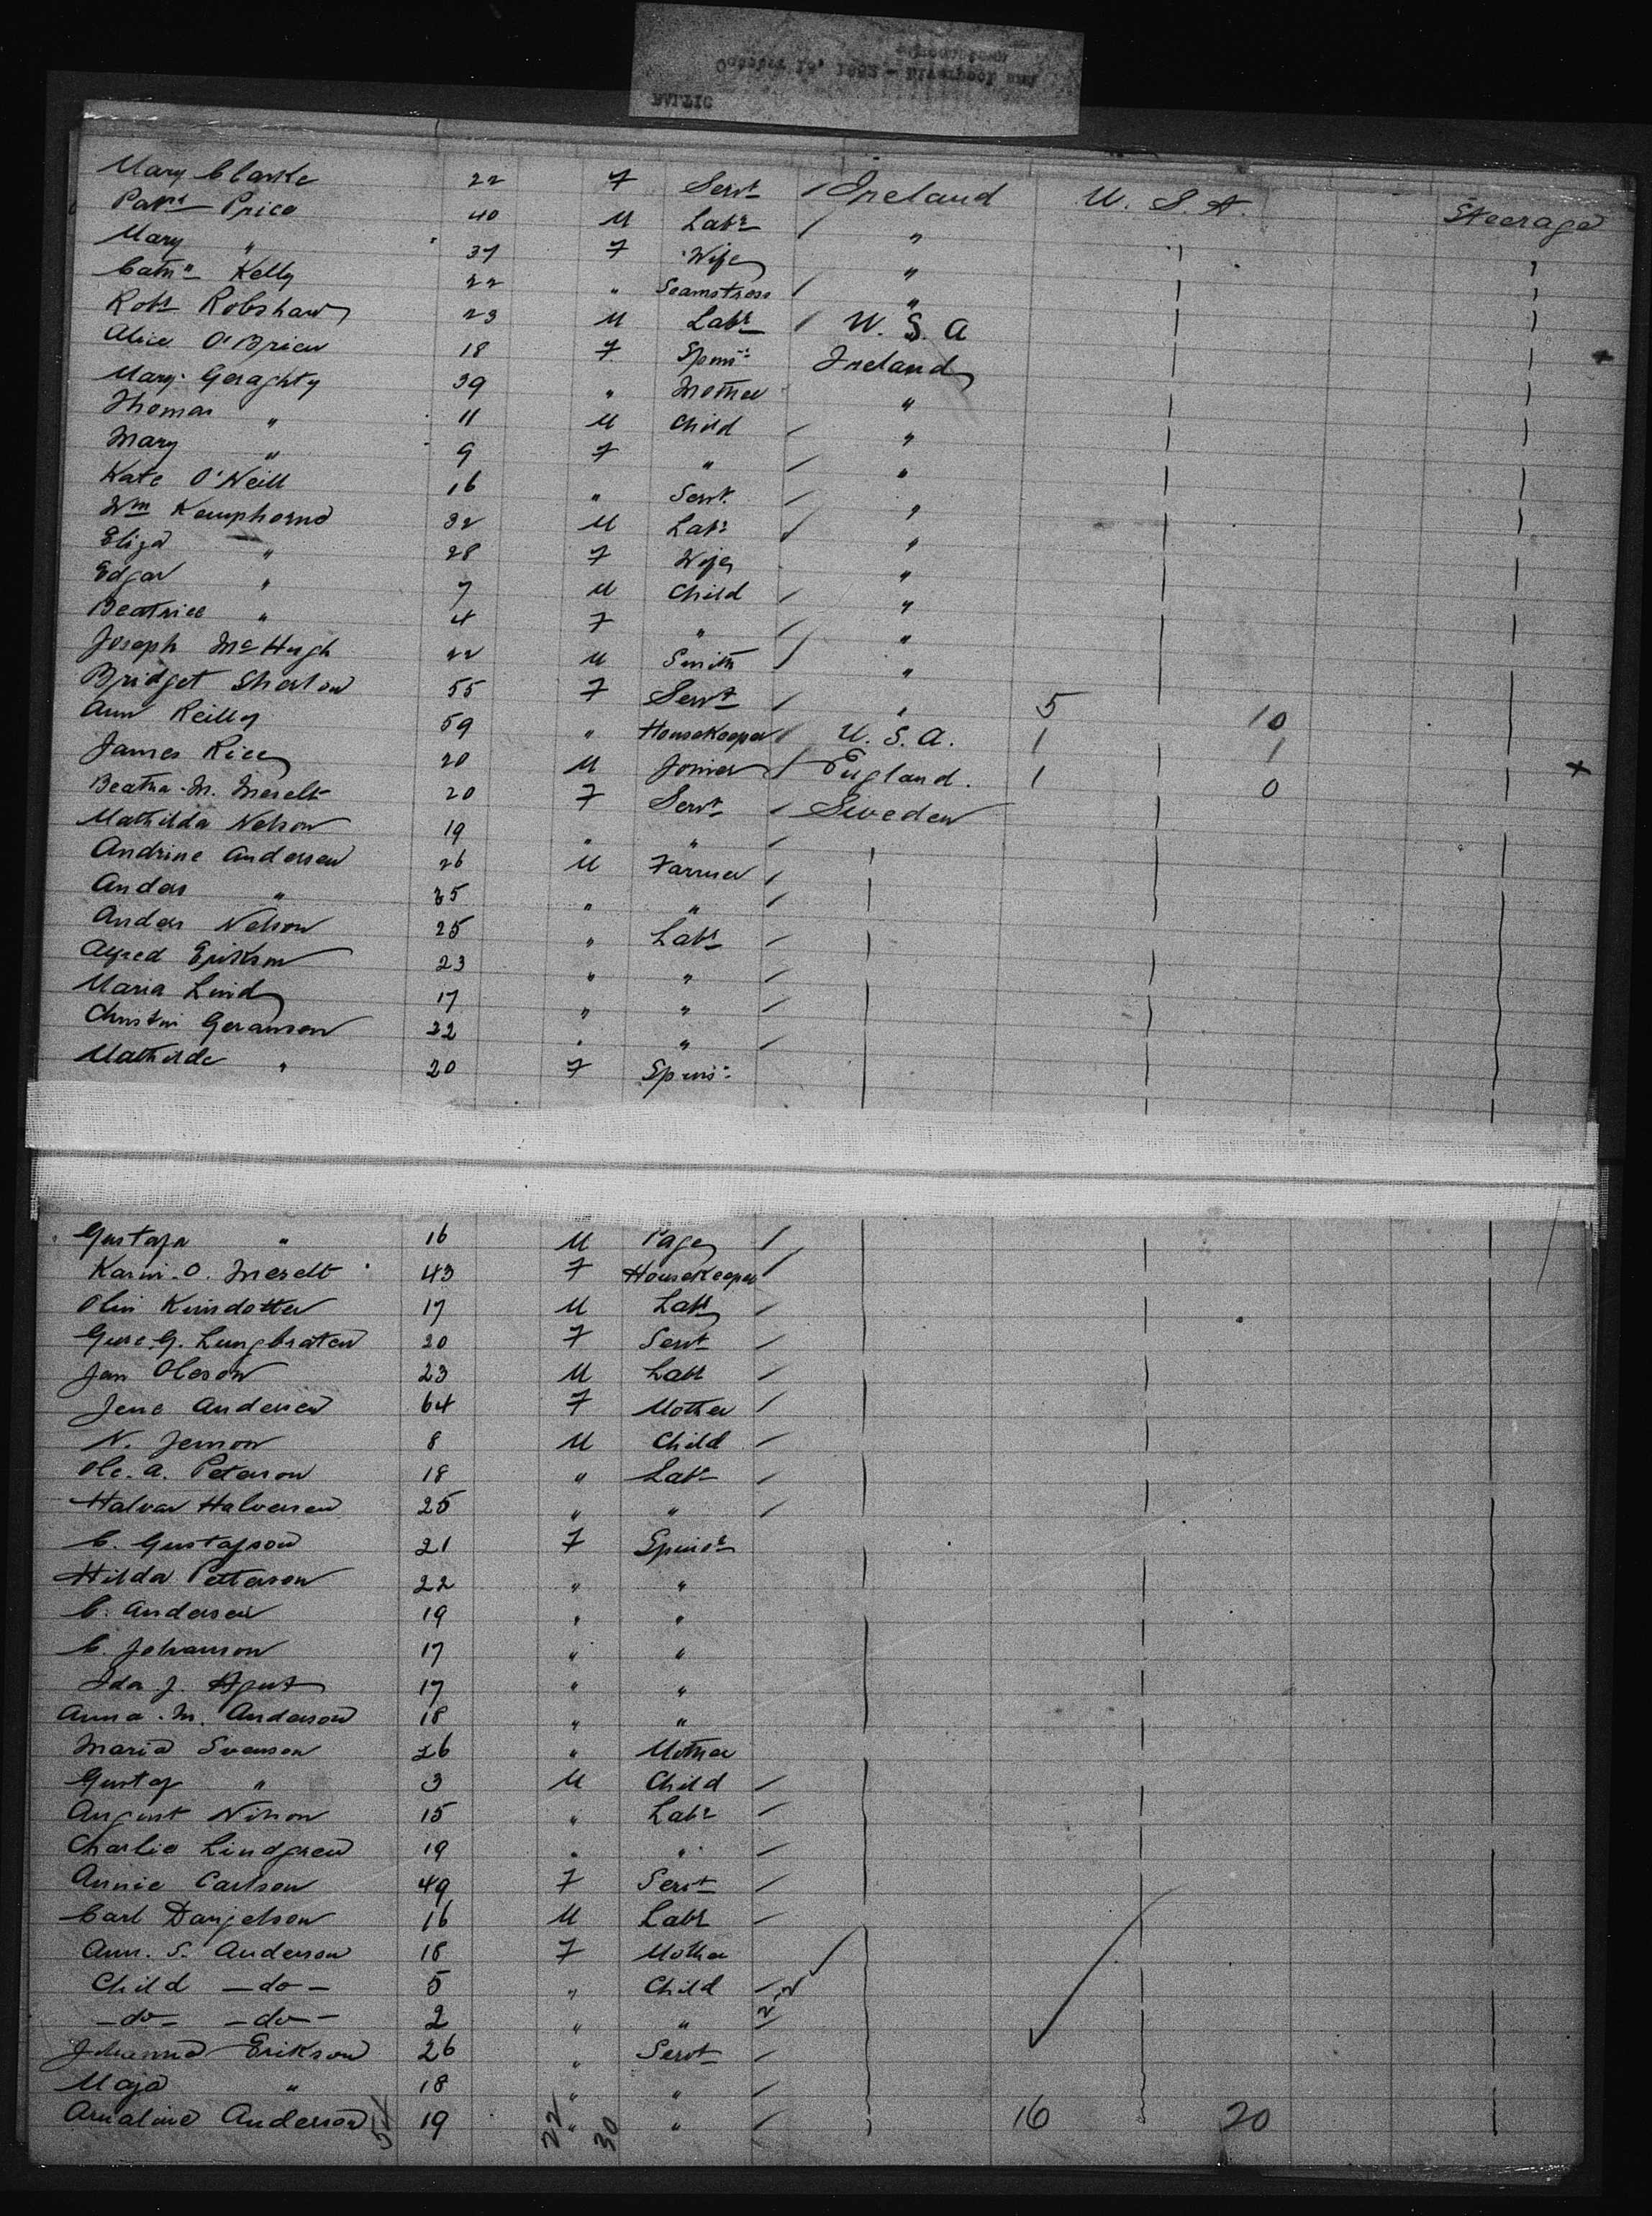 BALTIC
October 16, 1882 - Liverpool and
Queenstown
Mary Clarke 22 F Servt / Ireland U. S. A. Steerage
Patk Price 40 M Labr / " " "
Mary " 37 F Wife " " "
Cathn Kelly 22 " Seamstress / "
Robt Robshaw 23 M Labr / U. S. A
Alice O'Brien 18 F Spinsr Ireland
Mary Geraghty 39 " Mother "
Thomas " 11 M Child / "
Mary " 9 F " / "
Kate O'Neill 16 " Servt / "
Wm Kemphorne 32 M Labr / "
Eliza " 28 F Wife "
Edgar " 7 M Child / "
Beatrice " 4 F " / "
Joseph McHugh 22 M Smith / "
Bridget 55 F Servt / " 5 10
Ann Reilly 59 " Housekeeper / U. S. A. 1 1
James Rice 20 M Joiner / England. 1 0
Beatha M. Meselt 20 F Servt / Sweden
Mathilda Nelson 19 " " /
Andrine Andersen 26 M Farmer /
Anders " 35 " " /
Anders Nelson 25 " Labr /
Alfred Erikson 23 " " /
Maria Lind 17 " " /
Christin Goranson 22 " " /
Mathilde " 20 F Spinsr
Gustafa " 16 M Page /
Karin O. Meselt 43 F Housekeeper /
Olin Kinsdotter 17 M Labr /
Gure G. Lungbraten 20 F Servt /
Jan Oleson 23 M Labr /
Jene Andersen 64 F Mother /
N. Jenson 8 M Child /
Ole. A. Peterson 18 " Labr /
Halvar Halvorsen 25 " " /
C. Gustafson 21 F Spinsr
Hilda Petterson 22 " "
C. Andersen 19 " "
C. Johanson 17 " "
Ida J. 17 " "
Anna M. Anderson 18 " "
Maria Svenson 26 " Mother
Gustaf " 3 M Child /
August Nilson 15 " Labr /
Charlie Lindgren 19 " " /
Annie Carlson 49 F Servt /
Carl Danjelson 16 M Labr /
Ann. S. Anderson 18 F Mother
Child - do - 5 " Child /
- do - - do - 2 " " /
Johanna Erikson 26 " Servt /
Maja " 18 " " /
Amaline Anderson 19 " " / 16 20
54 22 30